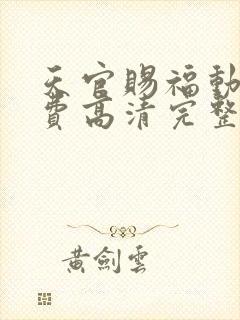 天官賜福動
費高清完整
黃劍雲